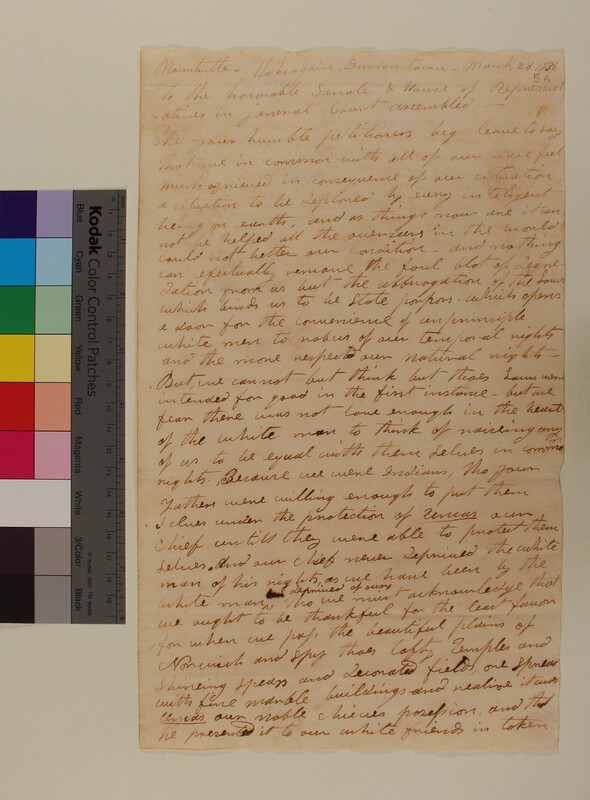 Montville - Mohegan - Indian town - March, 28 1836
5A
To the honorable Senate & House of Represent
-atives in jeneral Court assembled -
We your humble petitioners beg leave to say
that we in common with all of our race feel
much agrieved in consequence of our cituation,
a cituation to be deplored by every inteligent
being on earth, and as things now are it can
not be helped all the overseers in the world
could not better our condition - and nothing
can efectually remove the foul blot of Degre
dation from us but the abbrogation of the Laws
which binds us to be State porpors - which opens
a door for the convenience of unprinciple
white men to rob us of our temporal rights
and the more respected our natural rights -
But, we cannot but think but thoes Laws were
intended for good in the first instance - but we
fear there was not Love enough in the heart
of the white man to think of raiseing any
of us to be equal with them selves in common
rights. Because we were Indians, tho your
Fathers were willing enough to put them
selves under the protection of Uncas our
Chief untill they were able to protect them
selves, And our chief never Deprived the white
man of his rights, as we have been by the
white man, Deprived of ours tho we must acknowledge that
we ought to be thankful for the least favor
for when we pass the beautiful plains of
Norwich and Spy thoes Lofty Temples and
Shineing Spears and Decorated fields, one Spread
with fine marble buildings and realise it was
Uncas our noble chieves possession, and that
he presented it to our white friends in token
Kodak Color Control Patches
Blue
Cyan
Green
Yellow
Red
Magenta
White
3/Color
Black